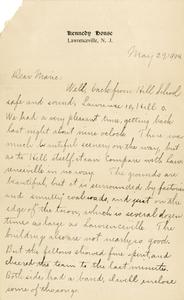 Kennedy House
Lawrenceville, N. J.
May 29, 1904
Dear Marie:
Well, back from Hill School
safe and sound, Lawrence 10, Hill 0.
We had a very pleasant time, getting back
last night about nine oclock. There was
much beautiful scenery on the way, but
as to Hill itself it can't compare with Law
renceville in no way. The grounds are
beautiful, but it is surrounded by factories
and smelly oil wells, and just on the
edge of the town, which is several dozen
times as large as Lawrenceville. The
buildings also are not nearly so good.
But the fellows showed fine spirit and
cheered the team to the last minute.
Both sides had a band, &
some of the songs.